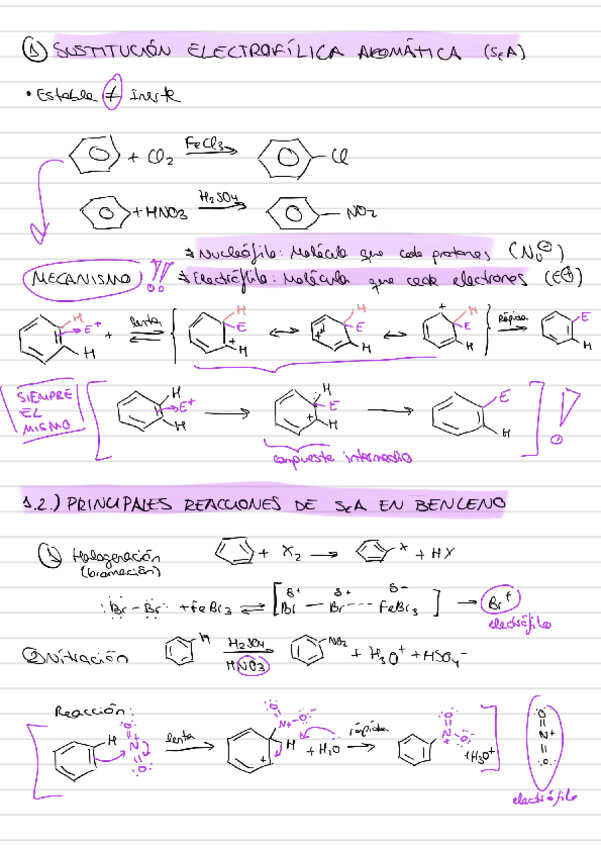 ① SUSTITUCIÓN ELECTROFÍLICA AROMÁTICA (SEA)
• Estable ≠ inerte
+ Cl2 FeCl3 Cl
+ HNO3 H2SO4 NO2
→ Nucleófilo: Molécula que cede protones (Nu⊖)
MECANISMO !! → Electrófilo: Molécula que cede electrones (E⊕)
H E+ H + lenta H E + H ↔ H E H ↔ + H E H Rápida E H
SIEMPRE EL MISMO
H E+ H → H E + H → E H !
compuesto intermedio
1.2.) PRINCIPALES REACCIONES DE SEA EN BENCENO
① Halogenación + X2 → X + HX
(bromación)
Br – Br + FeBr3 ⇌ [ δ+ Br — δ+ Br --- δ- FeBr3 ] → Br+
electrófilo
② Nitración H H2SO4 HNO3 NO2 + H3O+ + HSO4-
Reacción:
H O N+ O lenta O N+ O- H + + H2O rápida O N+ O- + H3O+ O N+ O
electrófilo